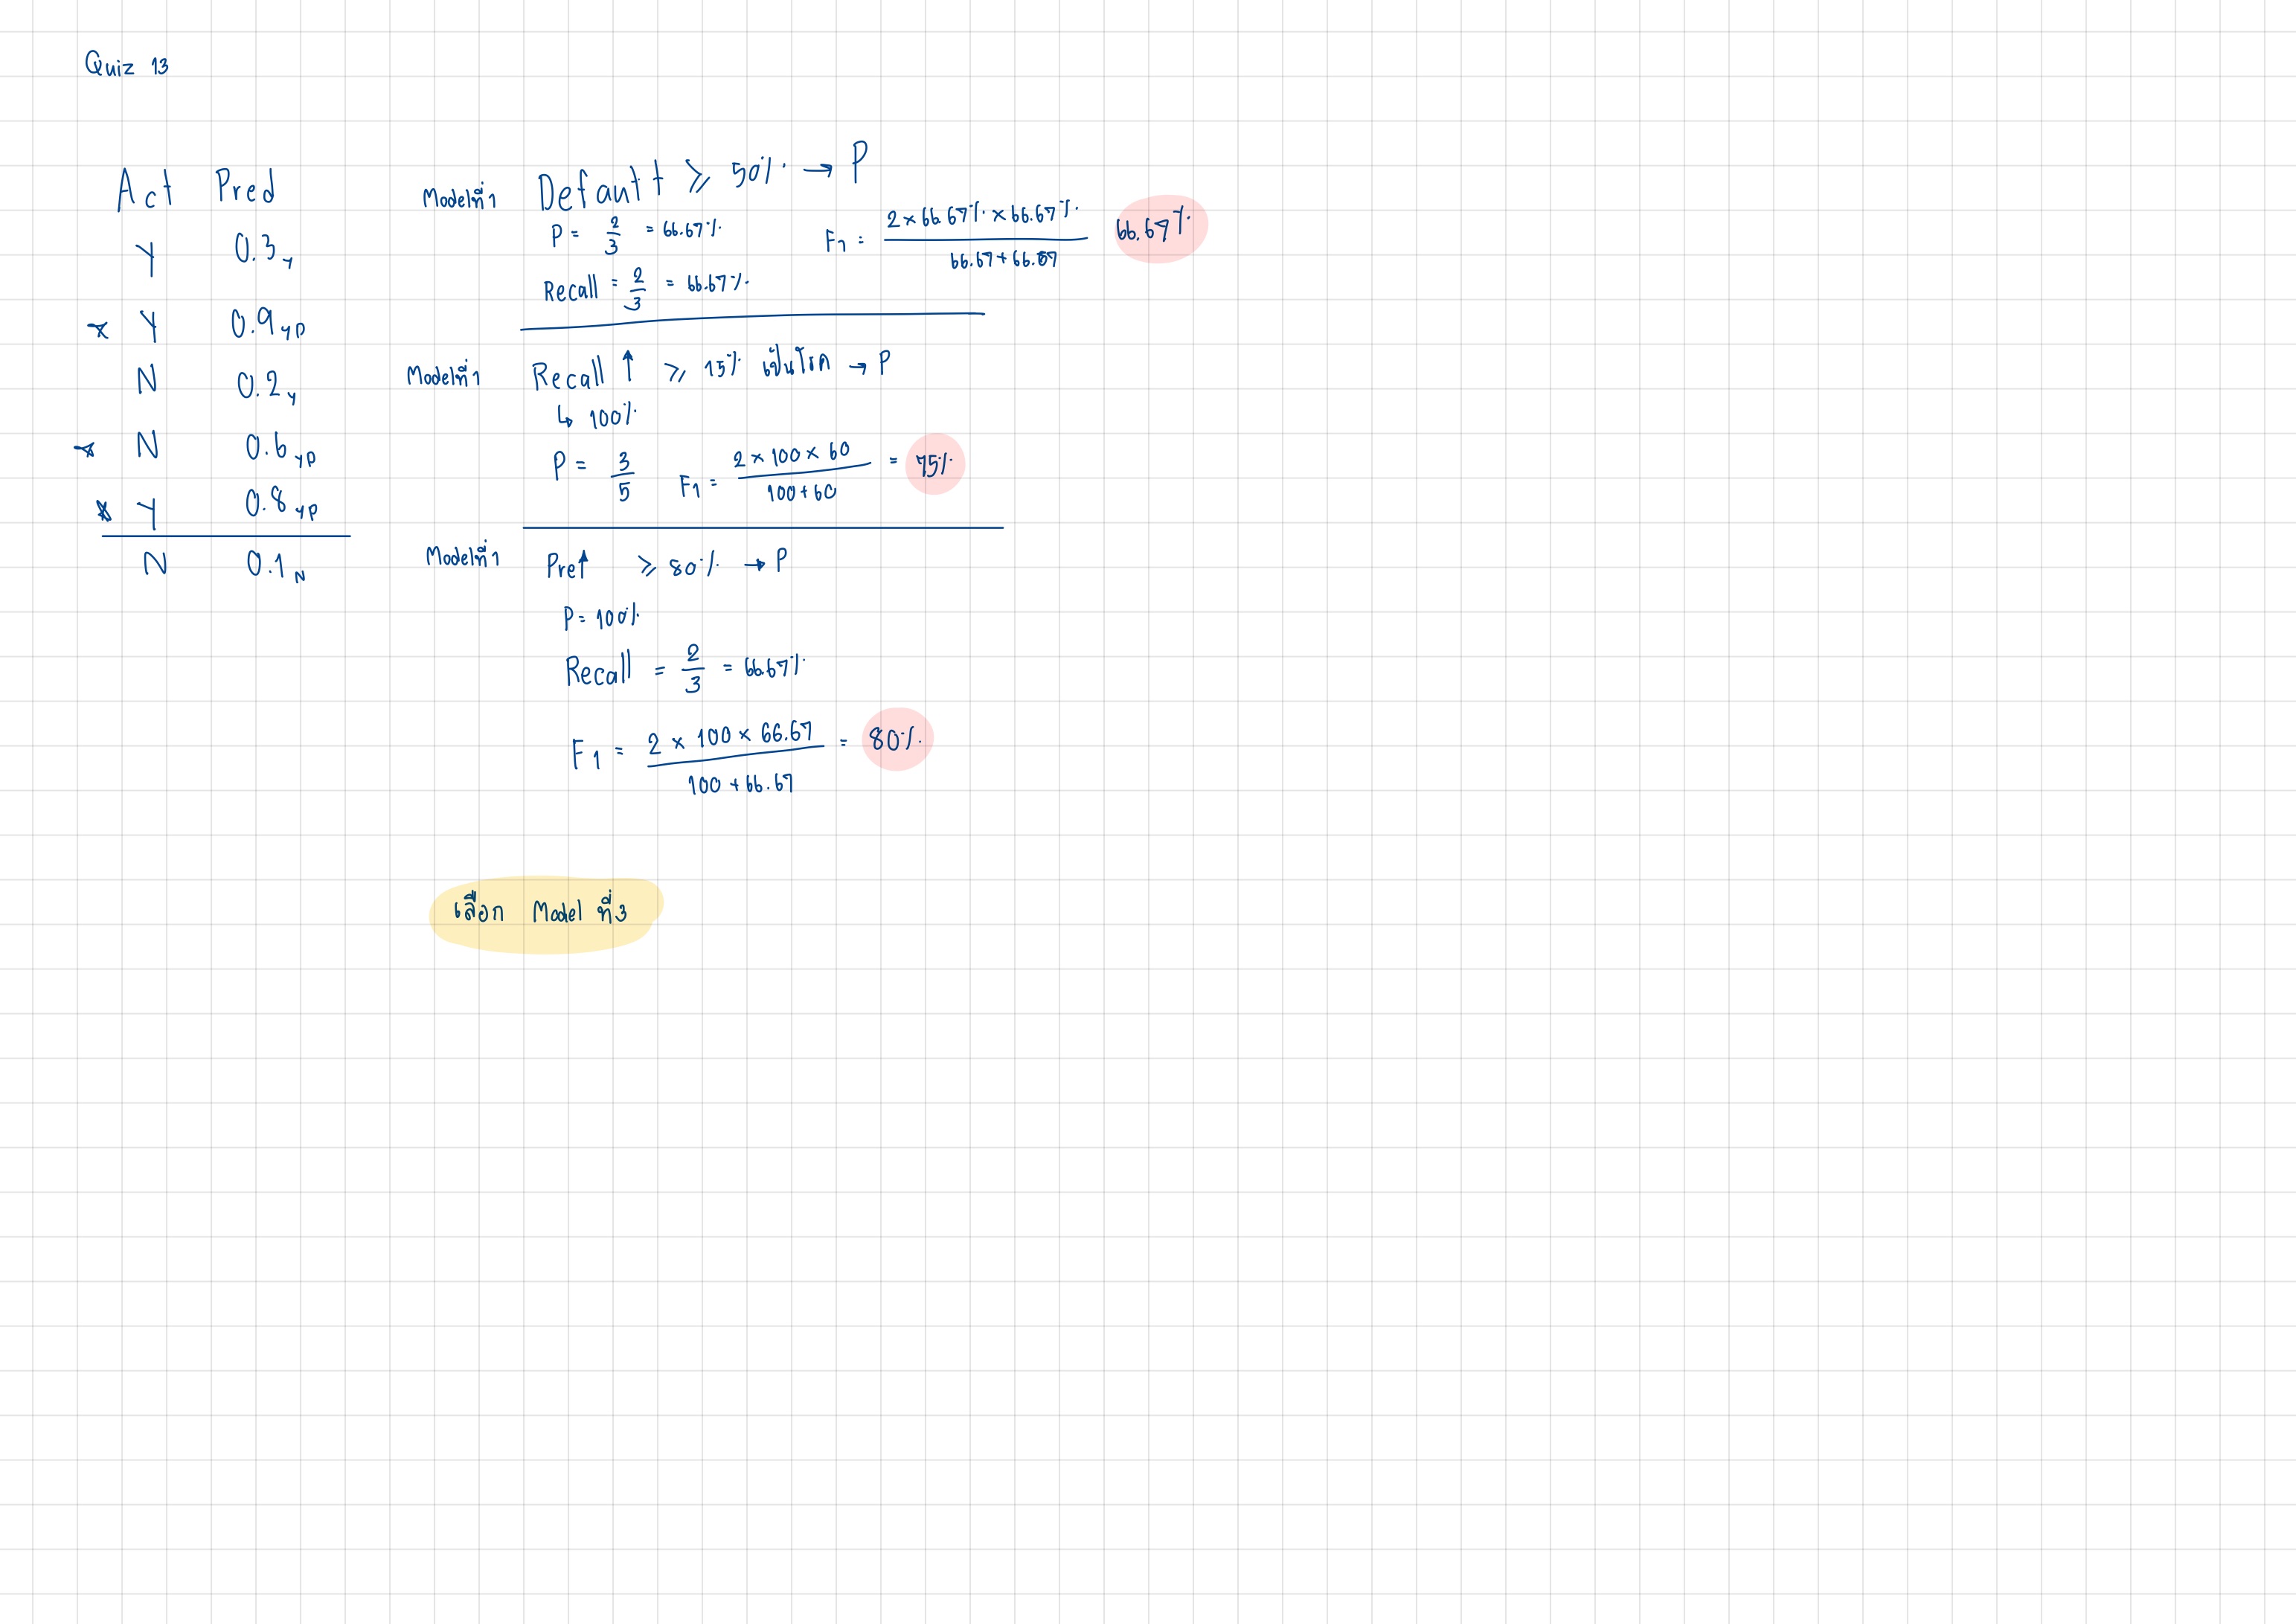 Quiz 13
Act Pred
Y 0.3 Y
* Y 0.9 YP
N 0.2 Y
* N 0.6 YP
* Y 0.8 YP
N 0.1 N
Modelที่1 Defautt ≥ 50% → P
P = 2/3 = 66.67%
Recall = 2/3 = 66.67%
F1 = 2 × 66.67% × 66.67% / 66.67 + 66.67 66.67%
Modelที่1 Recall ↑ ≥ 15% เป็นโรค → P
↳ 100%
P = 3/5 F1 = 2 × 100 × 60 / 100 + 60 = 75%
Modelที่1 Pre↑ ≥ 80% → P
P = 100%
Recall = 2/3 = 66.67%
F1 = 2 × 100 × 66.67 / 100 + 66.67 = 80%
เลือก Model ที่3